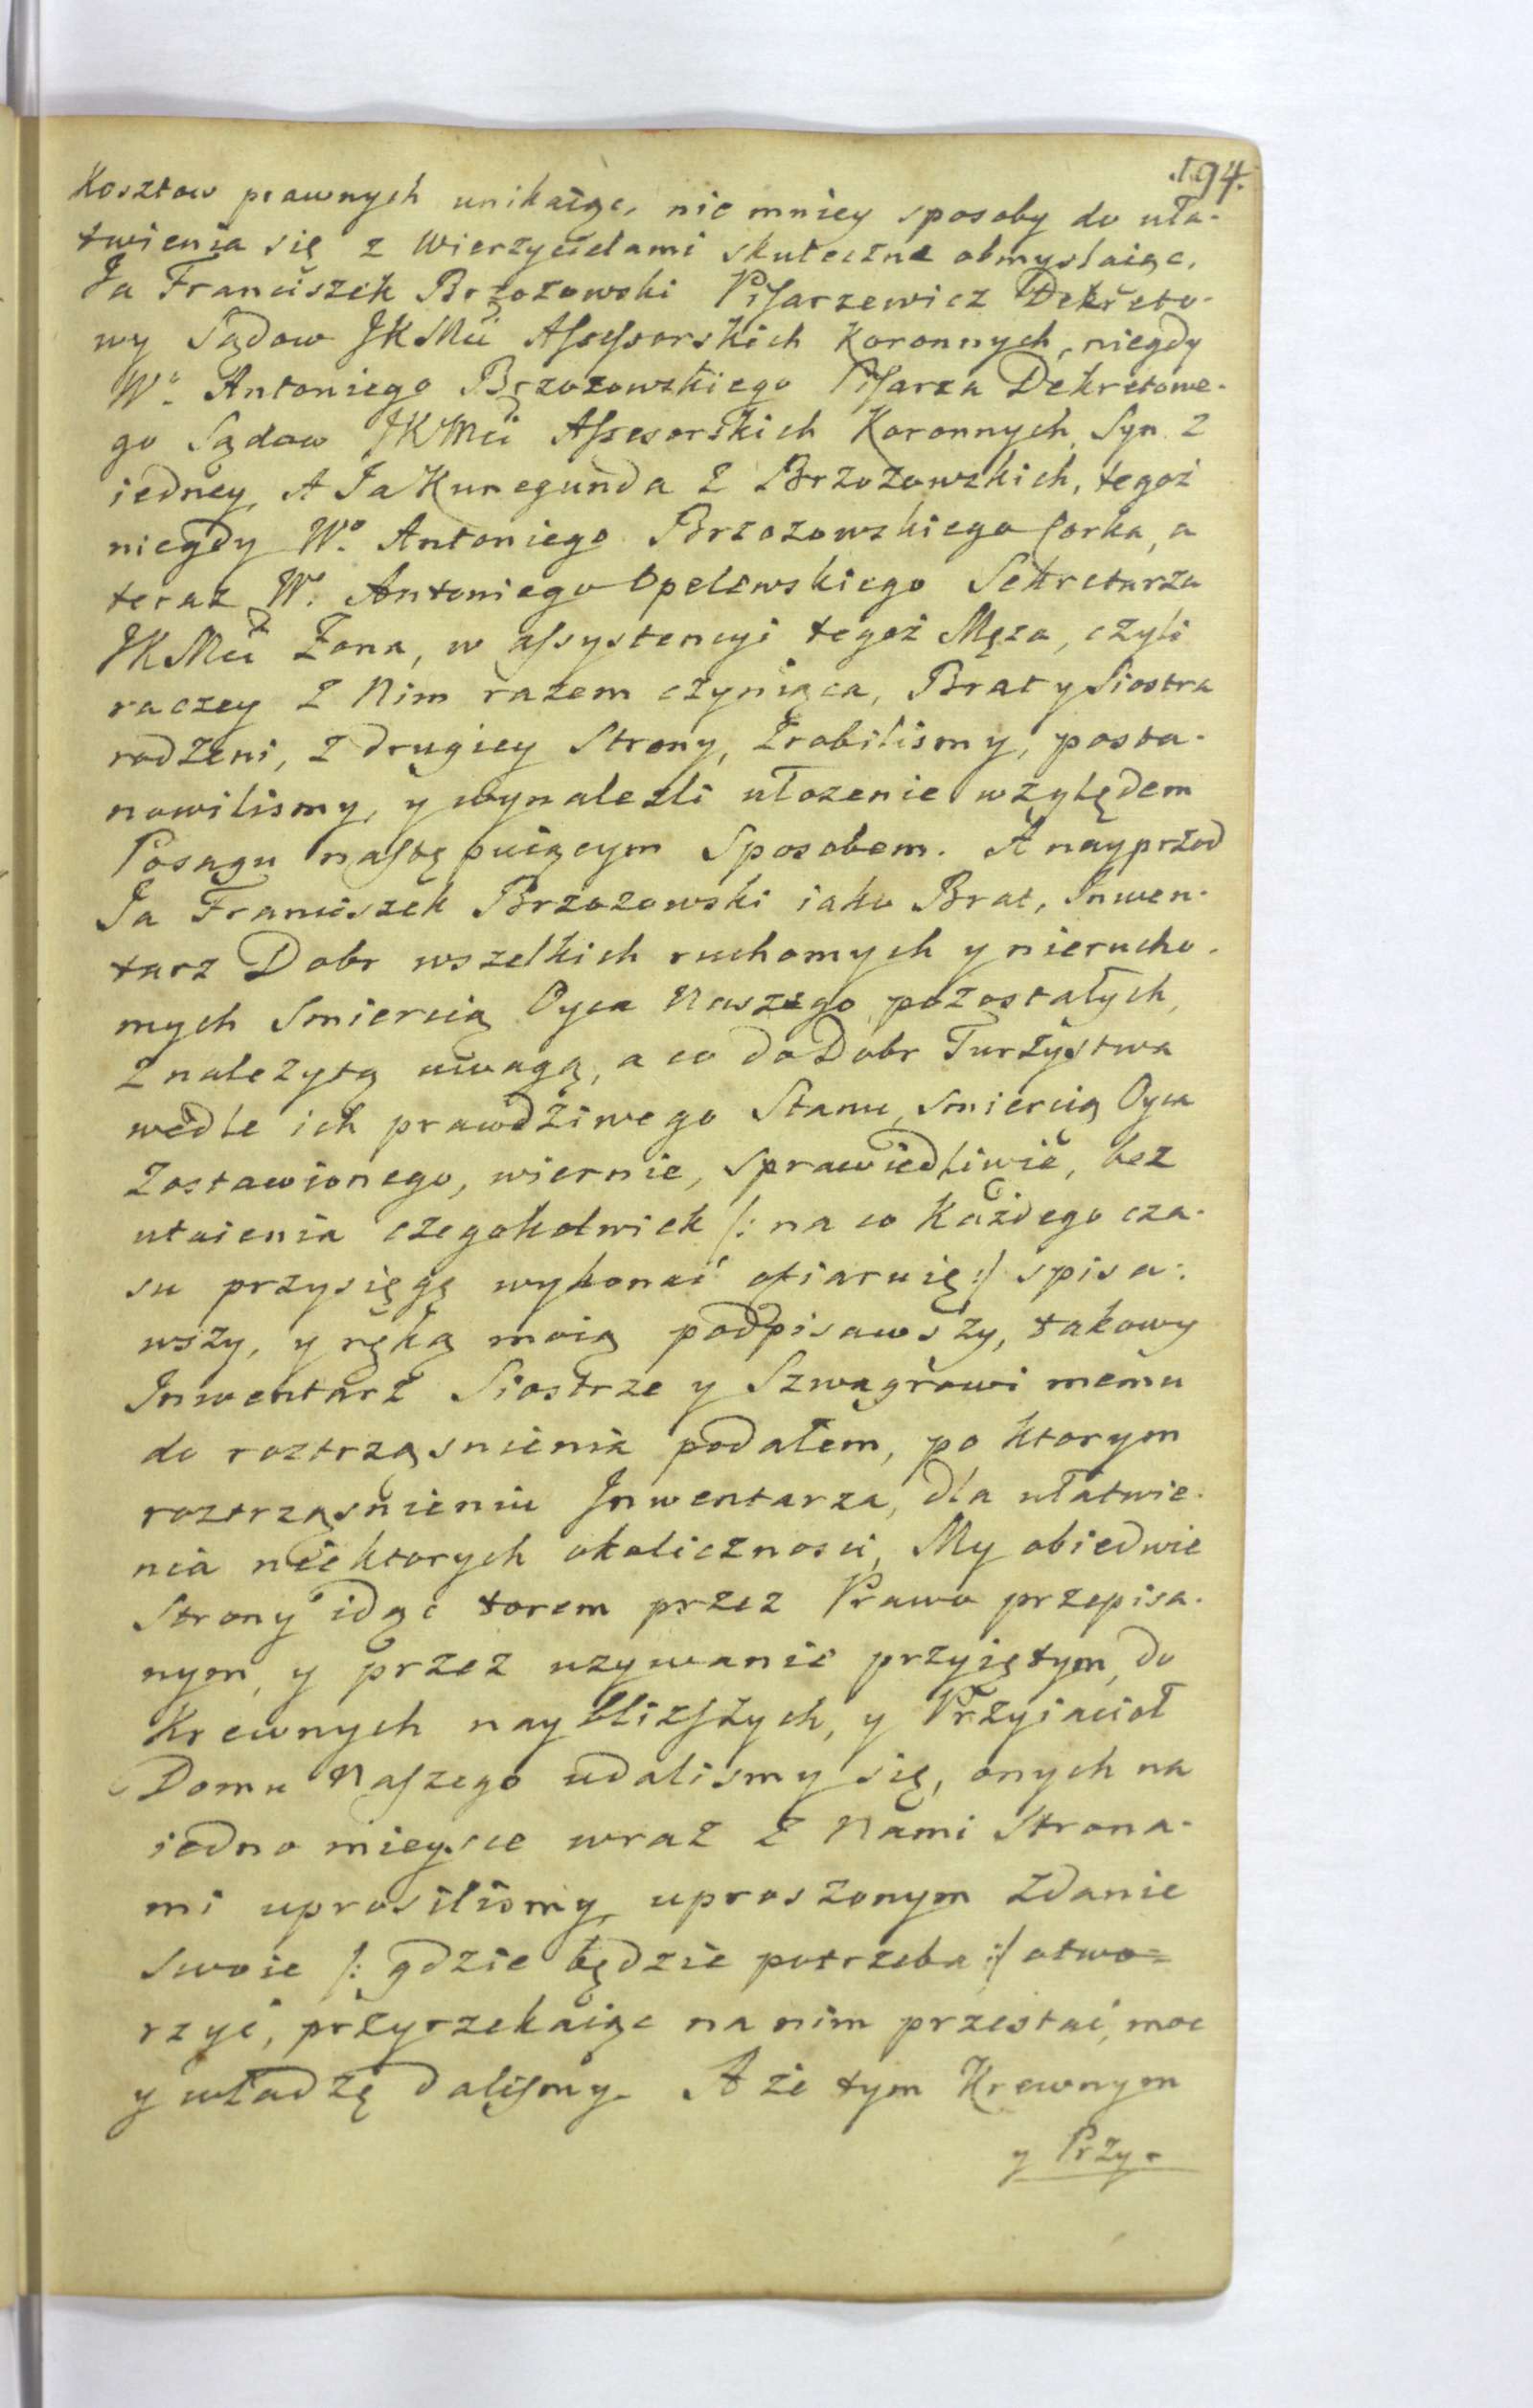 194.
Kosztow prawnych unikaiąc, nie mniey sposoby do uła-
twienia się z Wierzycielami skuteczne obmyslaiąc,
Ja Franciszek Brzozowski Pisarzewicz Dekreto-
wy Sądow JKMci Assessorskich Koronnych, niegdy
Wo. Antoniego Brzozowskiego Pisarza Dekretowe-
go Sądow JKMci Assesorskich Koronnych, Syn z
iedney, A Ja Kunegunda z Brzozowskich, tegoż
niegdy Wo. Antoniego Brzozowskiego Corka, a
teraz W. Antoniego Opelewskiego Sekretarza
JKMci Zona, w assystencyi tegoż Męza, czyli
raczey z Nim razem czyniąca, Brat y Siostra
rodzeni, z drugiey Strony, zrobilismy, posta-
nowilismy, y wynalezli ułozenie względem
Posagu następuiącym Sposobem. A nayprzod
Ja Franciszek Brzozowski iako Brat, Inwen-
tarz Dobr wszelkich ruchomych y nierucho-
mych Smiercią Oyca Naszego pozostałych,
z nalezytą uwagą, a co do Dobr Turzystwa
wedle ich prawdziwego Stanu, Smiercią Oyca
zostawionego, wiernie, sprawiedliwie, bez
utaienia czegokolwiek /: na co Każdego cza-
su przysięgę wykonać ofiaruię :/ spisa-
wszy, y ręką moią podpisawszy, takowy
Inwentarz Siostrze y Szwagrowi memu
do roztrząsnienia podałem, po ktorym
roztrząsnieniu Jnwentarza, dla ułatwie-
nia niektorych okolicznosci, My obiedwie
Strony idąc torem przez Prawo przepisa-
nym, y przez uzywanie przyiętym, do
Krewnych nayblizszych, y Przyiacioł
Domu Naszego udalismy się, onych na
iedno mieysce wraz z Nami Strona-
mi uprosilismy, uproszonym zdanie
swoie /: gdzie będzie potrzeba :/ otwo-
rzyć, przyrzekaiąc na nim przestać, moc
y władzę dalismy. A że tym Krewnym
y Przy-